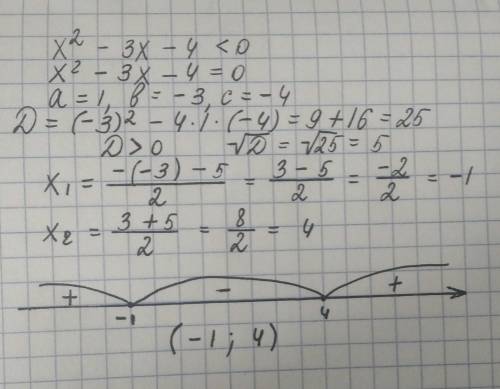 x² - 3x - 4 < 0
x² - 3x - 4 = 0
a = 1, b = -3, c = -4
D = (-3)² - 4·1·(-4) = 9 + 16 = 25
D > 0 √D = √25 = 5
x₁ = (-(-3) - 5)/2 = (3 - 5)/2 = -2/2 = -1
x₂ = (3 + 5)/2 = 8/2 = 4
+ - +
-1 4
(-1; 4)